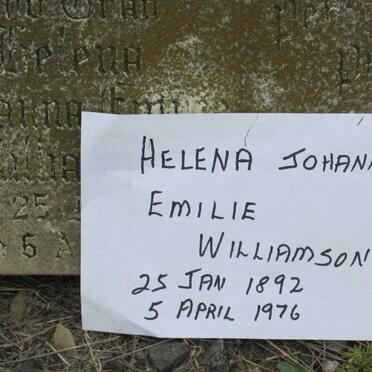 Helena
HELENA JOHANN
EMILIE
WILLIAMSON
25 JAN 1892
5 APRIL 1976
25
5 A